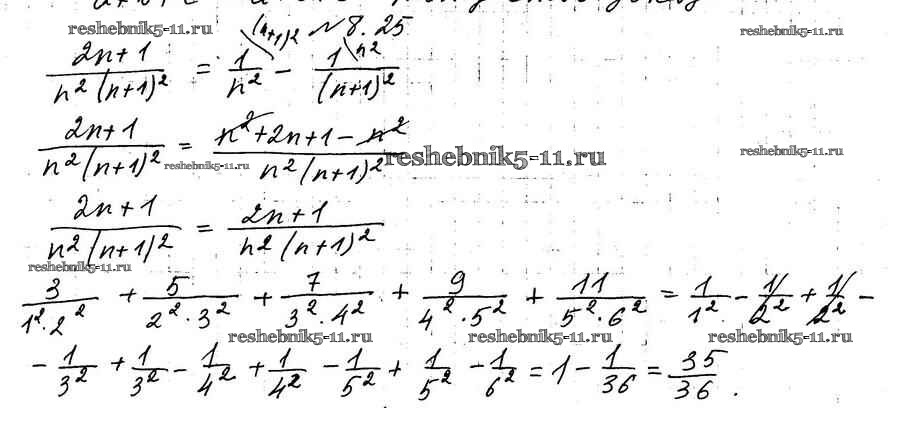 reshebnik5-11.ru (n+1)² №8.25 reshebnik5-11.ru
(2n+1)/(n²(n+1)²) = 1/n² - 1\n²/(n+1)²
(2n+1)/(n²(n+1)²) = (n²+2n+1-n²)/(n²(n+1)²) reshebnik5-11.ru
reshebnik5-11.ru reshebnik5-11.ru
(2n+1)/(n²(n+1)²) = (2n+1)/(n²(n+1)²)
reshebnik5-11.ru
3/(1²·2²) + 5/(2²·3²) + 7/(3²·4²) + 9/(4²·5²) + 11/(5²·6²) = 1/1² - 1/2² + 1/2² -
reshebnik5-11.ru reshebnik5-11.ru reshebnik5-11.ru
- 1/3² + 1/3² - 1/4² + 1/4² - 1/5² + 1/5² - 1/6² = 1 - 1/36 = 35/36.